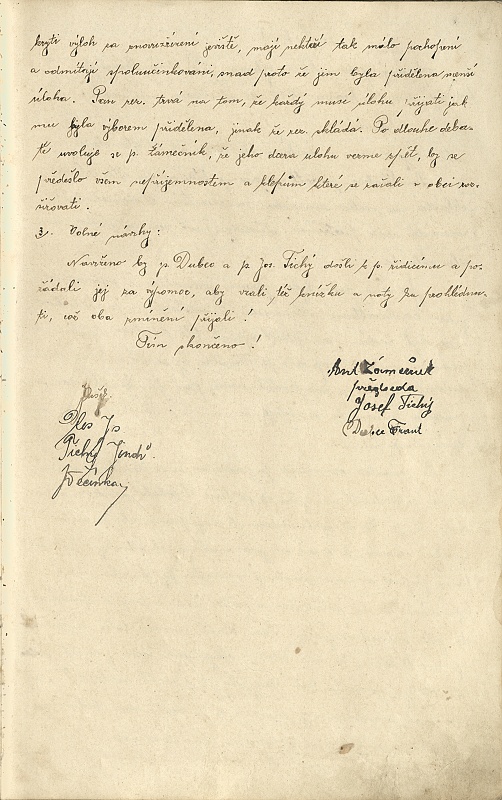 krytí výloh za znovuzřízení jeviště, mají někteří tak málo pochopení
a odmítají spoluúčinkování, snad proto že jim byla přidělena menší
úloha. Pan rez. trvá na tom, že každý musí úlohu přijati jak
mu byla výborem přidělena, jinak že rez. skládá. Po dlouhé deba-
tě uvoluje se p. Zámečník, že jeho dcera ulohu vezme spět, by se
předešlo všem nepříjemnostem a klepům které se začali v obci roz-
šiřovati.
3. Volné návrhy:
Navrženo by p. Dubec a p. Jos. Tichý došli k p. řídícímu a po-
žádali jej za výpomoc, aby vzali též knížku a noty ku prohlédnu-
tí, což oba zmínění přijali!
Tím skončeno!
Ant Zámečník
předseda
Josef Tichý
Dubec Frant
Ples Js
Tichý Jindř.
J Večinka